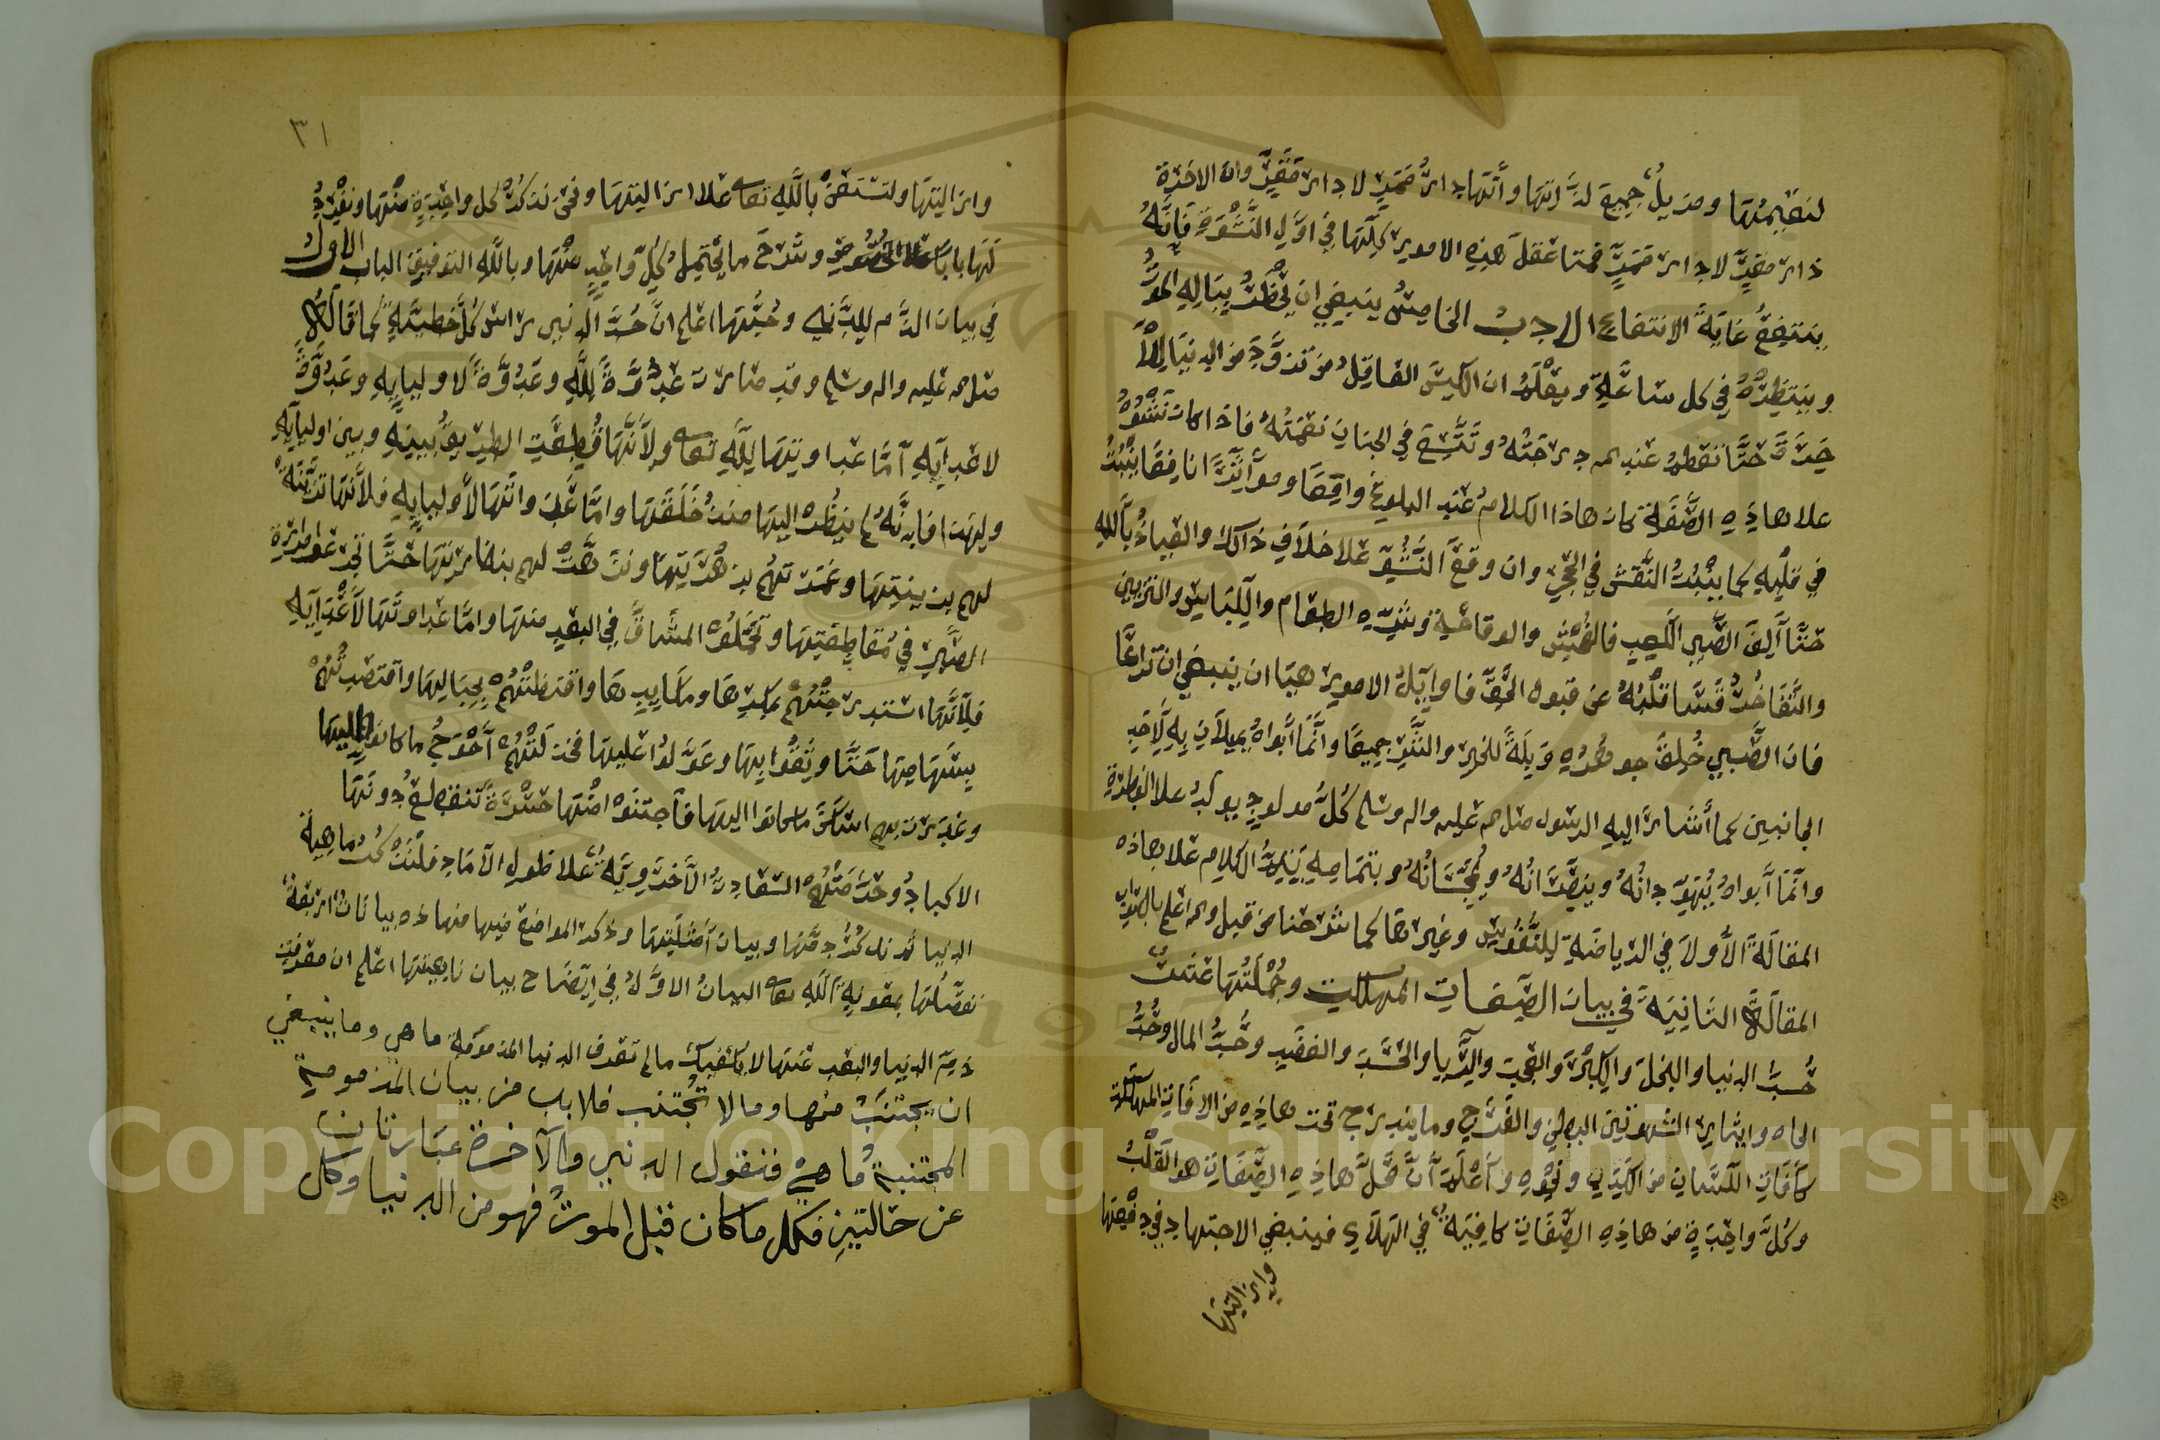 لنعيمها ومزيلٌ جميعَ لذّاتها وأنّها دارُ ممرٍّ لا دار مقرٍّ وان الاخرة
دار مقرٍّ لا دار ممرٍّ فمتا عقل هذه الامور كلّها في اوّل النشوة فانّه
ينتفعُ غاية الانتفاع الادب الخامس ينبغي ان يُخطَر بباله الموتُ
وينتظرهُ في كل ساعة ويعلم ان الكيّس العاقل من تزوّد من الدنيا للا
خرة حتّا تعظم عند الله درجته وتتّسع في الجنان نعمته فاذا كان نشوه
علا هاذه الصّفة كان هاذا الكلام عند البلوغ واقعا ومؤثّرًا نافعًا يثبُتُ
في قلبه كما يثبُتُ النّقش في الحجر وان وقع النّشو علا خلاف ذالك والعياذ بالله
حتّا آلِفَ الصّبي اللّعب فالفُحش والوقاحة وشره الطعام واللّباس والتزيين
والتّفاخُر قَسَا قلبُه عن قبول الحقّ فاوايلُ الامور هيا ان ينبغي ان تراعَا
فان الصّبي خُلِقَ جوهره قابلةً للخير والشّرّ جميعًا وأنّما أبواه يميلان به لأحد
الجانبين كما أشار اليه الرسول صلى الله عليه واله وسلم كُلُّ مولودٍ يولد علا الفطرة
وأنّما أبواهُ يُهوّدانُهُ وينصّرانُهُ ويُمجّسانُهُ وبتمامه يتمُّ الكلام علا هاذه
المقالة الأولا في الرياضة للنُّفوس وغيرها كما شرحنا من قبل والله اعلم بالصواب
المقالةُ الثانيةُ في بيان الصّفات المهلكات وجُملتُها عشرٌ
حُبُّ الدنيا والبخلُ والكِبرُ والعُجبُ والرّيا والحَسَدُ والغضب وحُبُّ المال وحُبُّ
الجاه وايثار الشهوتين البطن والفَرج وما يندرج تحت هاذه من الافات المهلكة
كآفات اللّسان من الكذب ونحوه وأعْلَم أنّ محلّ هاذه الصّفات هو القلبُ
وكُلّ واحدةٍ من هاذه الصّفات كافيةٌ في الهلاك فينبغي الاجتهاد في دفعها
وازالتها
٣١
وازالتها ولتستعن بالله تعالى علا ازالتها ونحن نذكُرُ كل واحدةٍ منها ونُفردُ
لها بابًا علا الخُصوص وشرح ما يحتمل كُلّ واحدٍ منها وبالله التوفيق الباب الأول
في بيان الذّم للدّنيا وحُبّها اعلم انّ حُبّ الدنيا راس كلّ خطيئةٍ كما قاله
صلى الله عليه واله وسلم وقد صارت عدُوّةً للّه وعدُوّةً لاوليايه وعدُوّةً
لاعدايه امّا عداوتها لله تعالى ولأنّها قُطِعَت الطريق بينه وبين اوليايه
ولهذا فانّه لم ينظُر اليها منذُ خَلَقَها وامّا عداوتها لأوليايه فلأنّها تزيّنة
لهم بزينتها وغمرتهم بزهرتها ونضارتها حتّا تجرّعوا مرارة
الصّبر في مُقاطعتها وتحمّلوا المشاقّ في البعد منها وامّا عداوتها لأعدايه
فلأنّها استدرجتهُم بمكرها ومكايدها واقتنصتهم بحبالها واقتصبتهُم
بسهامها حتّا وثقُوا بها وعوّلوا عليها فخذلتهُم أحوج ما كانوا اليها
وغدرت بهم اسكن ما كانوا اليها فاجتنوا منها حسرةً تنقطع دونها
الاكباد وحرمتهُم السّعادةُ الأخرويةُ علا طول الآماد فلنذكُر ماهية
الدنيا ثم نذكُرُ ذمّها وبيان أمثلتها وذكر المواضع فيها فهاذه بيانات اربعةٌ
نفصّلُها بمعونة الله تعالى البيانُ الاوّلُ في ايضاح بيان ماهيتها اعلم ان معرفة
ذمّ الدنيا والبعد عنها لا يكفيك ما لم تعرف الدنيا المذمومة ما هي وما ينبغي
ان يجتنبُ منها وما لا تُجتنب فلا بد من بيان المذمومة
المجتنبة ما هيَ فنقول الدنيا والآخرة عبارتان
عن حالتين فكل ما كان قبل الموت فهو من الدنيا وكل
Copyright © King Saud University
1957